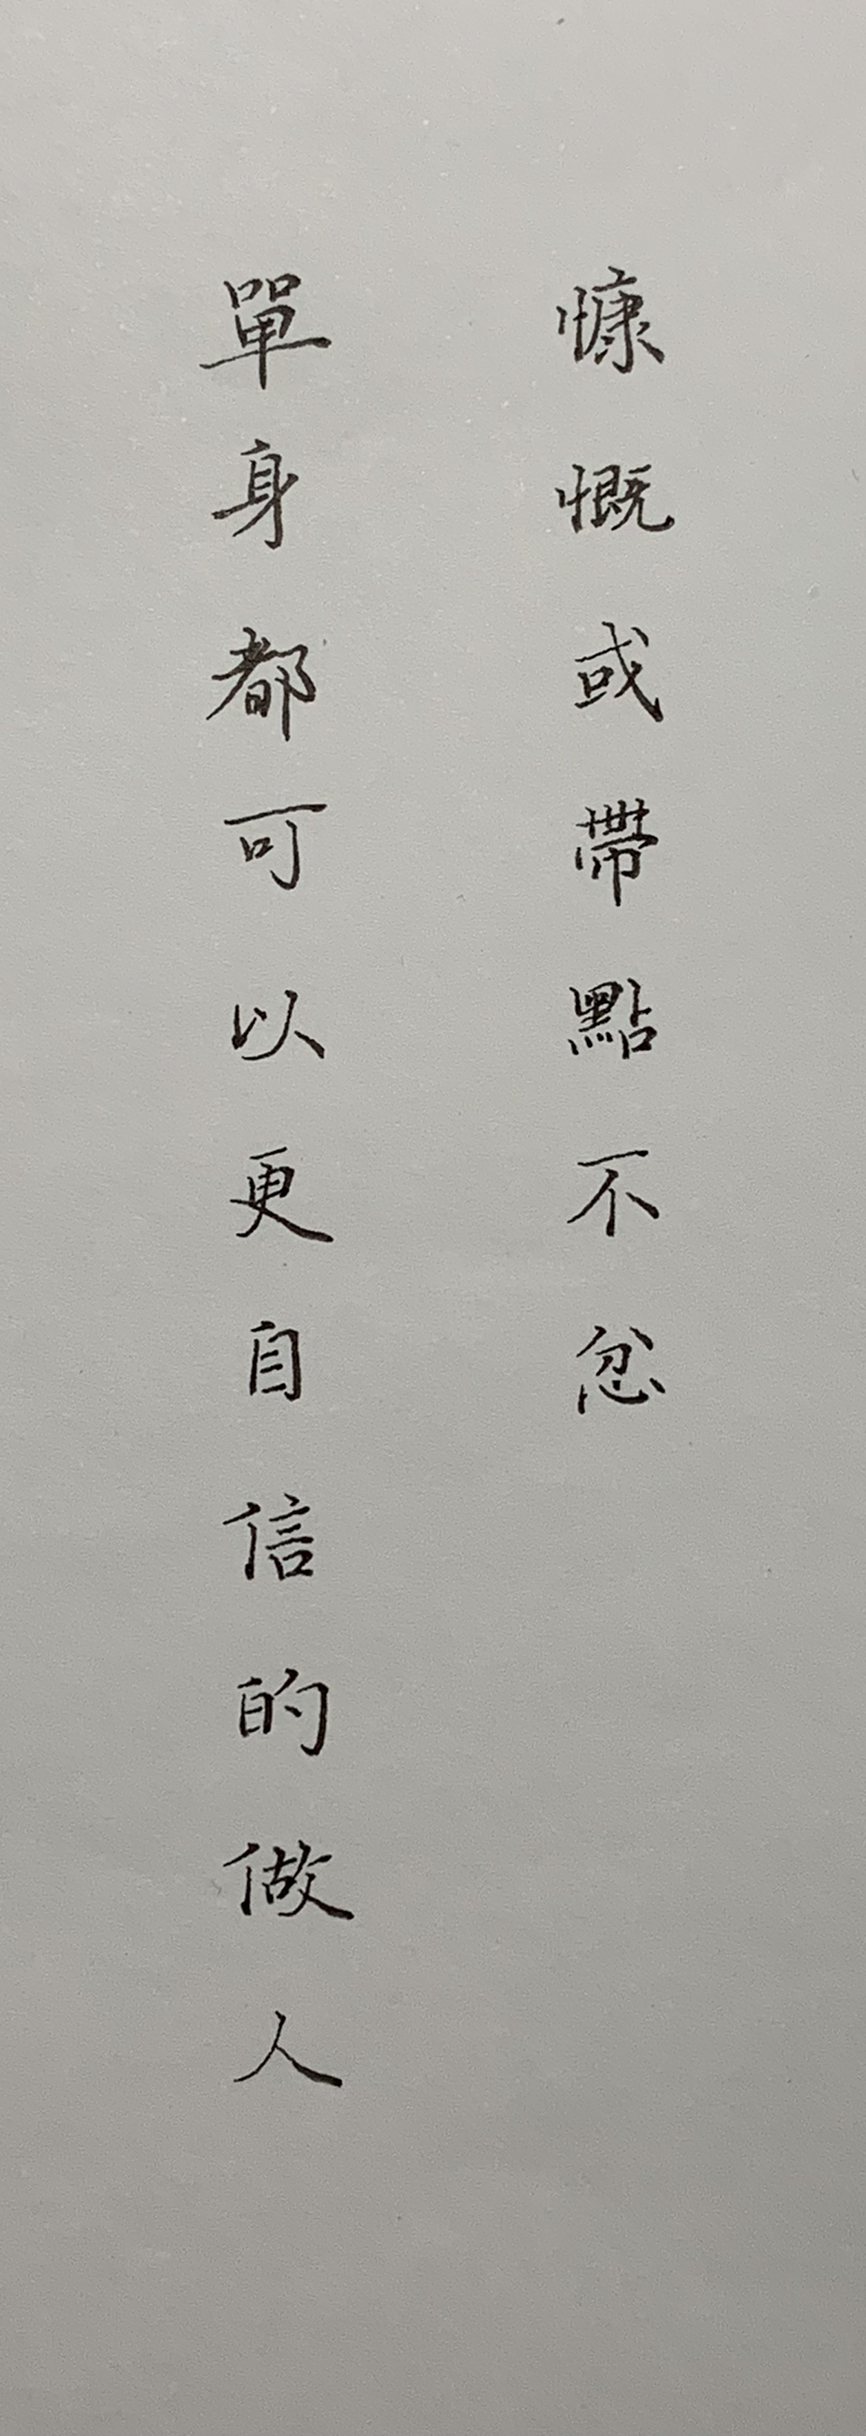 慷慨或帶點不忿
單身都可以更自信的做人